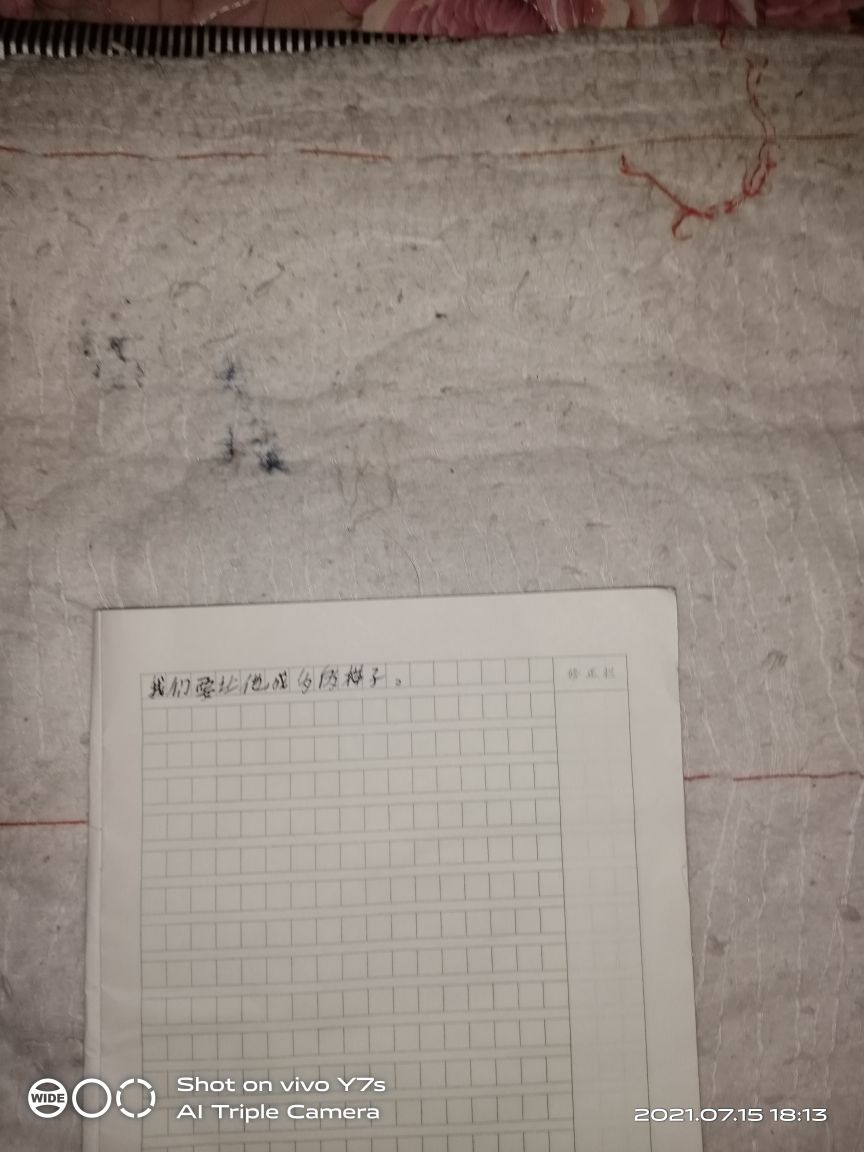 我们要让他成为的样子。
修正栏
WIDE
Shot on vivo Y7s
AI Triple Camera
2021.07.15 18:13